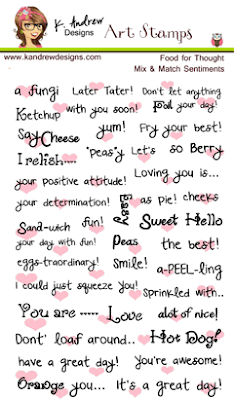 K. Andrew Designs Art Stamps
www.kandrewdesigns.com Food for Thought
Mix & Match Sentiments
a fungi Later Tater! Don't let anything
Ketchup with you soon! Foil your day!
Say Cheese yum! Fry your best!
I relish---- "peas"y Let's so Berry
your positive attitude! Loving you is...
your determination! Easy as pie! cheeks
Sand-wich fun! Sweet Hello
your day with fun! Peas the best!
eggs-traordinary! Smile! a-PEEL-ling
I could just squeeze You! Sprinkled with..
You are ----- Love alot of nice!
Dont' loaf around.. Hot Dog!
have a great day! You're awesome!
Orange you... It's a great day!